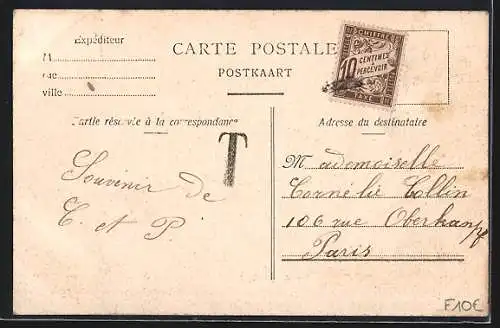 Expéditeur
M
rue
ville
CARTE POSTALE
POSTKAART
CHIFFRE
10
CENTIMES
À
PERCEVOIR
TAXE
Partie réservée à la correspondance
Adresse du destinataire
T
Souvenir de
C et P
Mademoiselle
Cornélie Collin
106 rue Oberkampf
Paris
F10€